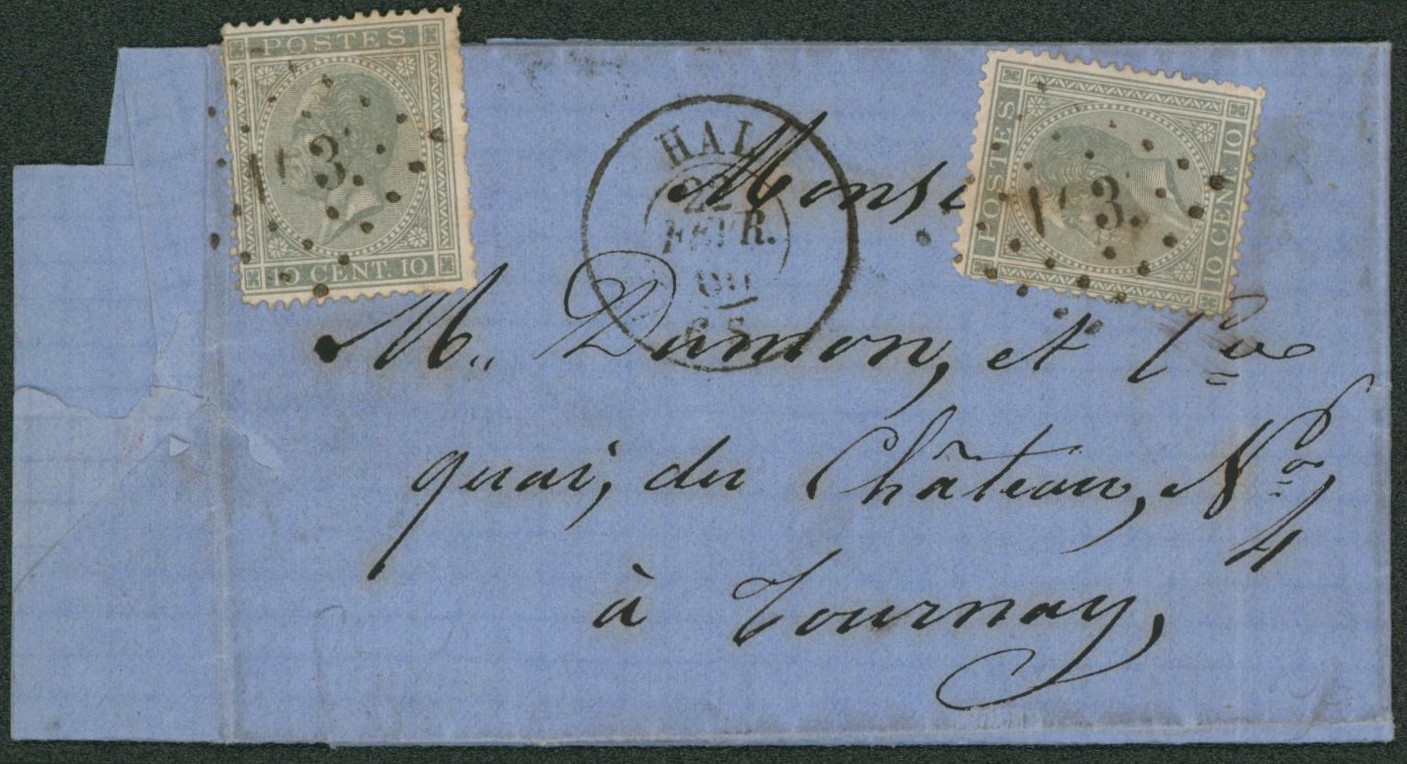 POSTES
10 CENT. 10
HAL
22
FEVR.
POSTES
10 CENT. 10
Monsi
M,, Dumon, et Cie
quai, du Château, No
4
à Tournay,